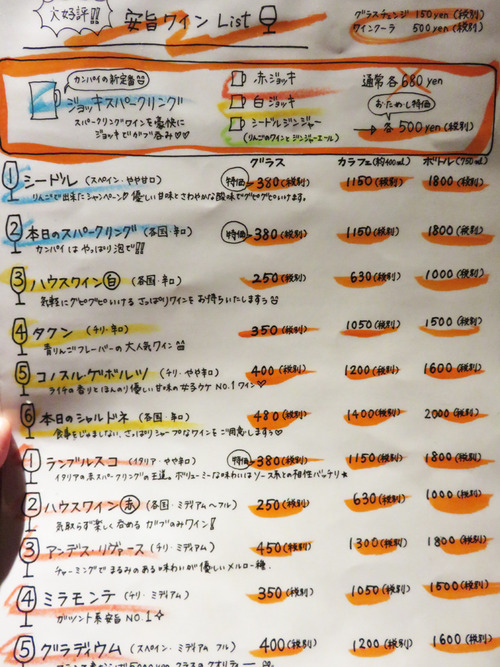 大好評!!
安旨ワイン List
グラスチェンジ 150yen (税別)
ワインクーラ 500yen (税別)
カンパイの新定番
ジョッキスパークリング
スパークリングワインを豪快に
ジョッキでがぶ呑み♡♡
赤ジョッキ
白ジョッキ
シードルジンジャー
(りんごのワインとジンジャーエール)
通常各680yen
おためし特価
→各500yen (税別)
グラス カラフェ(約400ml) ボトル(750ml)
1 シードル (スペイン・やや甘口) 特価 380(税別) 1150(税別) 1800(税別)
りんごで出来たシャンペン!! 優しい甘味とさわやかな酸味でグビグビいけます。
2 本日のスパークリング (各国・辛口) 特価 380(税別) 1150(税別) 1800(税別)
カンパイは やっぱり泡で!!
3 ハウスワイン白 (各国・辛口) 250(税別) 630(税別) 1000(税別)
気軽にグビグビいける さっぱりワインを お持ちいたしますっ
4 タクン (チリ・辛口) 350(税別) 1050(税別) 1500(税別)
青りんごフレーバーの 大人気ワイン
5 コノスル・ゲボルツ (チリ・やや辛口) 400(税別) 1200(税別) 1600(税別)
ライチの香りとほんのり優しい甘味の女子ウケNO.1ワイン♡
6 本日のシャルドネ (各国・辛口) 480(税別) 1400(税別) 2000(税別)
食事をじゃましない、さっぱりシャープなワインをご用意しますっ♡
1 ランブルスコ (イタリア・やや辛口) 特価 380(税別) 1150(税別) 1800(税別)
イタリアの赤スパークリングの王道。ボリューミーな味わいはソース系との相性バッチリ★
2 ハウスワイン赤 (各国・ミディアム〜フル) 250(税別) 630(税別) 1000(税別)
気取らず楽しく呑める ガブのみワイン!
3 アンデス・リヴァース (チリ・ミディアム) 450(税別) 1300(税別) 1800(税別)
チャーミングで まるみのある味わいが優しいメルロー種。
4 ミラモンテ (チリ・ミディアム) 350(税別) 1050(税別) 1500(税別)
ガツント系安旨NO.1
5 グラディウム (スペイン・ミディアム フル) 400(税別) 1200(税別) 1600(税別)